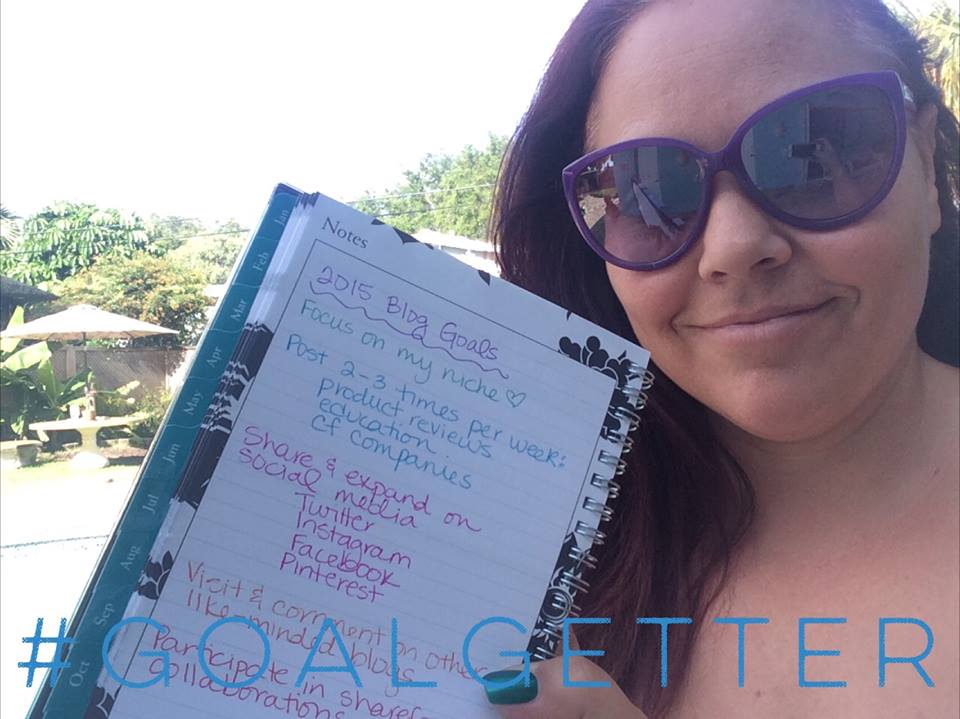 Notes
2015 Blog Goals
Focus on my niche♡
Post 2-3 times per week:
product reviews
education
CF companies
Share & expand on
social media
Twitter
Instagram
Facebook
Pinterest
Visit & comment on other
like-minded blogs
Participate in
collaborations
Jan
Feb
Mar
Apr
May
Jun
Jul
Aug
Sep
Oct
#GOALGETTER